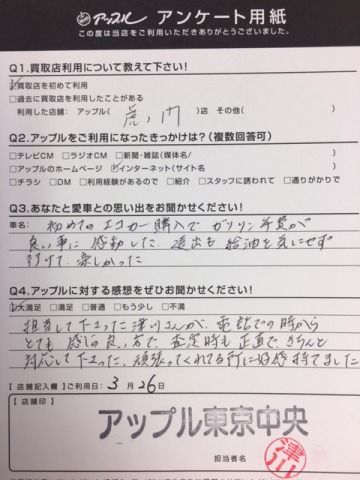 アップル アンケート用紙
この度は当店をご利用いただきありがとうございました。
Q1.買取店利用について教えて下さい!
☑買取店を初めて利用
□過去に買取店を利用したことがある
利用した店舗: アップル( 虎ノ門 )店 その他( )
Q2.アップルをご利用になったきっかけは?(複数回答可)
□テレビCM □ラジオCM □新聞・雑誌(媒体名/ )
□アップルのホームページ ☑インターネット(サイト名 )
□チラシ □DM □利用経験があるので □紹介 □スタッフに誘われて □通りがかりで
Q3.あなたと愛車との思い出をお聞かせください!
車名: 初めてのエコカー購入でガソリン年費が
良い事に感動した。遠出も給油を気にせず
行けて、楽しかった
Q4.アップルに対する感想をぜひお聞かせください!
☑大満足 □満足 □普通 □もう少し □不満
担当して下さった津川さんが、電話での時から
とても感じの良い方で、査定時も正直で、きちんと
対応して下さった。頑張ってくれてる所に好感持てました
【店舗記入欄】ご利用日: 3 月 26 日
【店舗印】
アップル東京中央
担当者名
津川